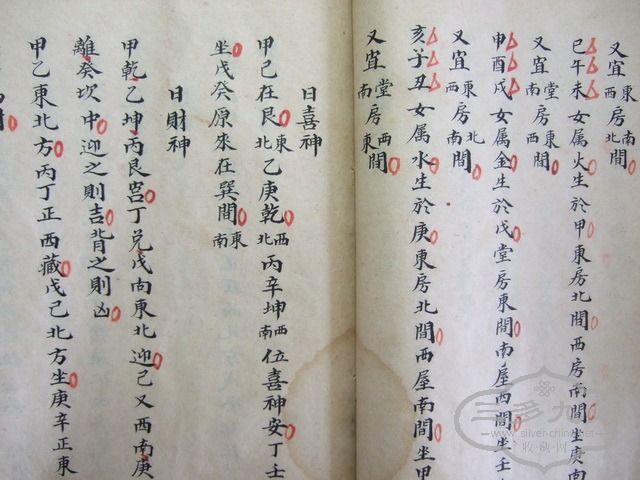 又宜東南房北間
巳午未女属火生於甲東房北間西房南間坐庚南
又宜堂東房南西間
申酉戌女属金生於戊堂房東間南屋西間坐壬
又宜東北房西南間
亥子丑女属水生於庚東房北間西屋南間坐甲
又宜堂西房南東間
日喜神
甲己在艮東北乙庚乾西北丙辛坤西南位喜神安丁壬
坐戊癸原來在巽間東南
日財神
甲乾乙坤丙艮宫丁兑戊向東北迎己又西南庚
離癸坎中迎之則吉背之則凶
甲乙東北方丙丁正西藏戊己北方坐庚辛正東
www.silver-china
收·藏·网